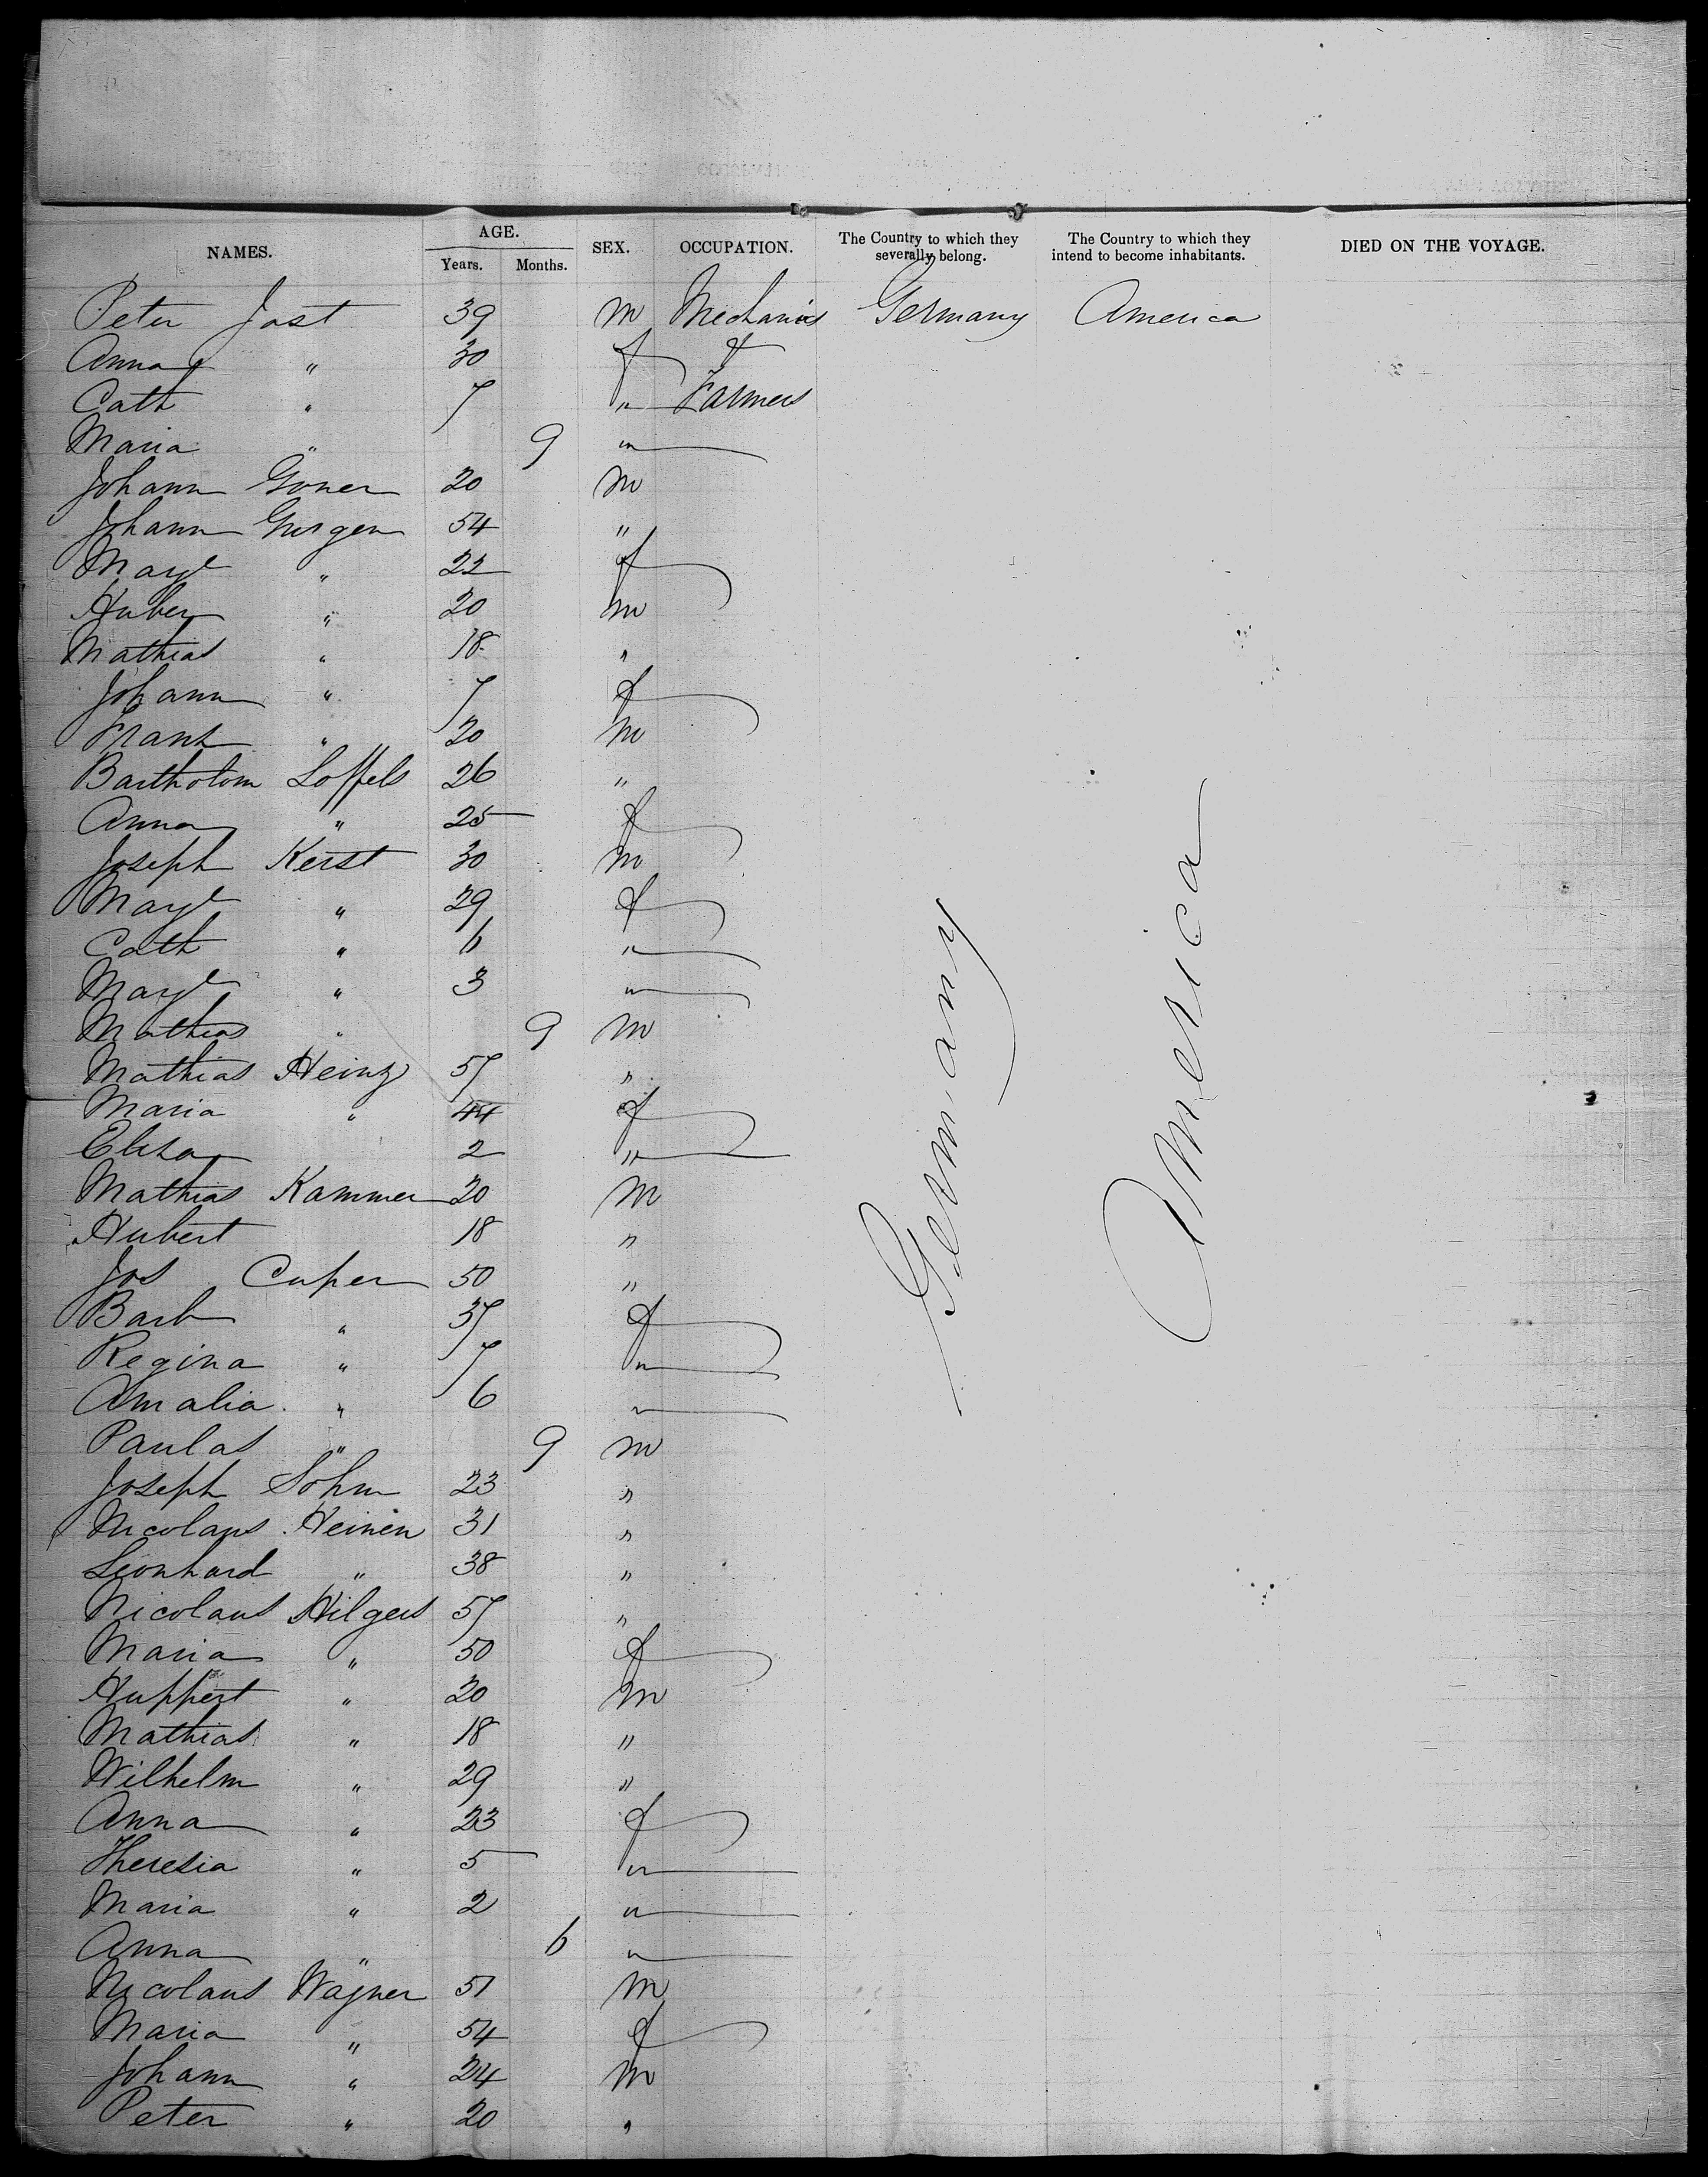 NAMES. AGE. Years. Months. SEX. OCCUPATION. The Country to which they severally belong. The Country to which they intend to become inhabitants. DIED ON THE VOYAGE.
Peter Jost 39 m Mechanics Germany America
Anna " 30 f &
Cath " 7 " Farmers
Maria " 9 "
Johann Goner 20 m
Johann Gorgen 54 "
Margt " 22 f
Huber " 20 m
Mathias " 18 "
Johann " 7 f
Frank " 20 m
Bartholom Loffels 26 "
Anna " 25 f
Joseph Kerst 30 m
Margt " 29 f
Cath " 6 "
Margt " 3 "
Mathias " 9 m
Mathias Heinz 57 "
Maria " 44 f
Elisa 2 "
Mathias Kammer 20 m
Hubert 18 "
Jos Cuper 50 "
Barb " 37 f
Regina " 7 "
Amalia " 6 "
Paulas " 9 m
Joseph Sohm 23 "
Nicolaus Heinen 31 "
Leonhard " 38 "
Nicolaus Hilgers 57 "
Maria " 50 f
Huppert " 20 m
Mathias " 18 "
Wilhelm " 29 "
Anna " 23 f
Theresia " 5 "
Maria " 2 "
Anna " 6 "
Nicolaus Wagner 51 m
Maria " 54 f
Johann " 24 m
Peter " 20 "
Germany
America